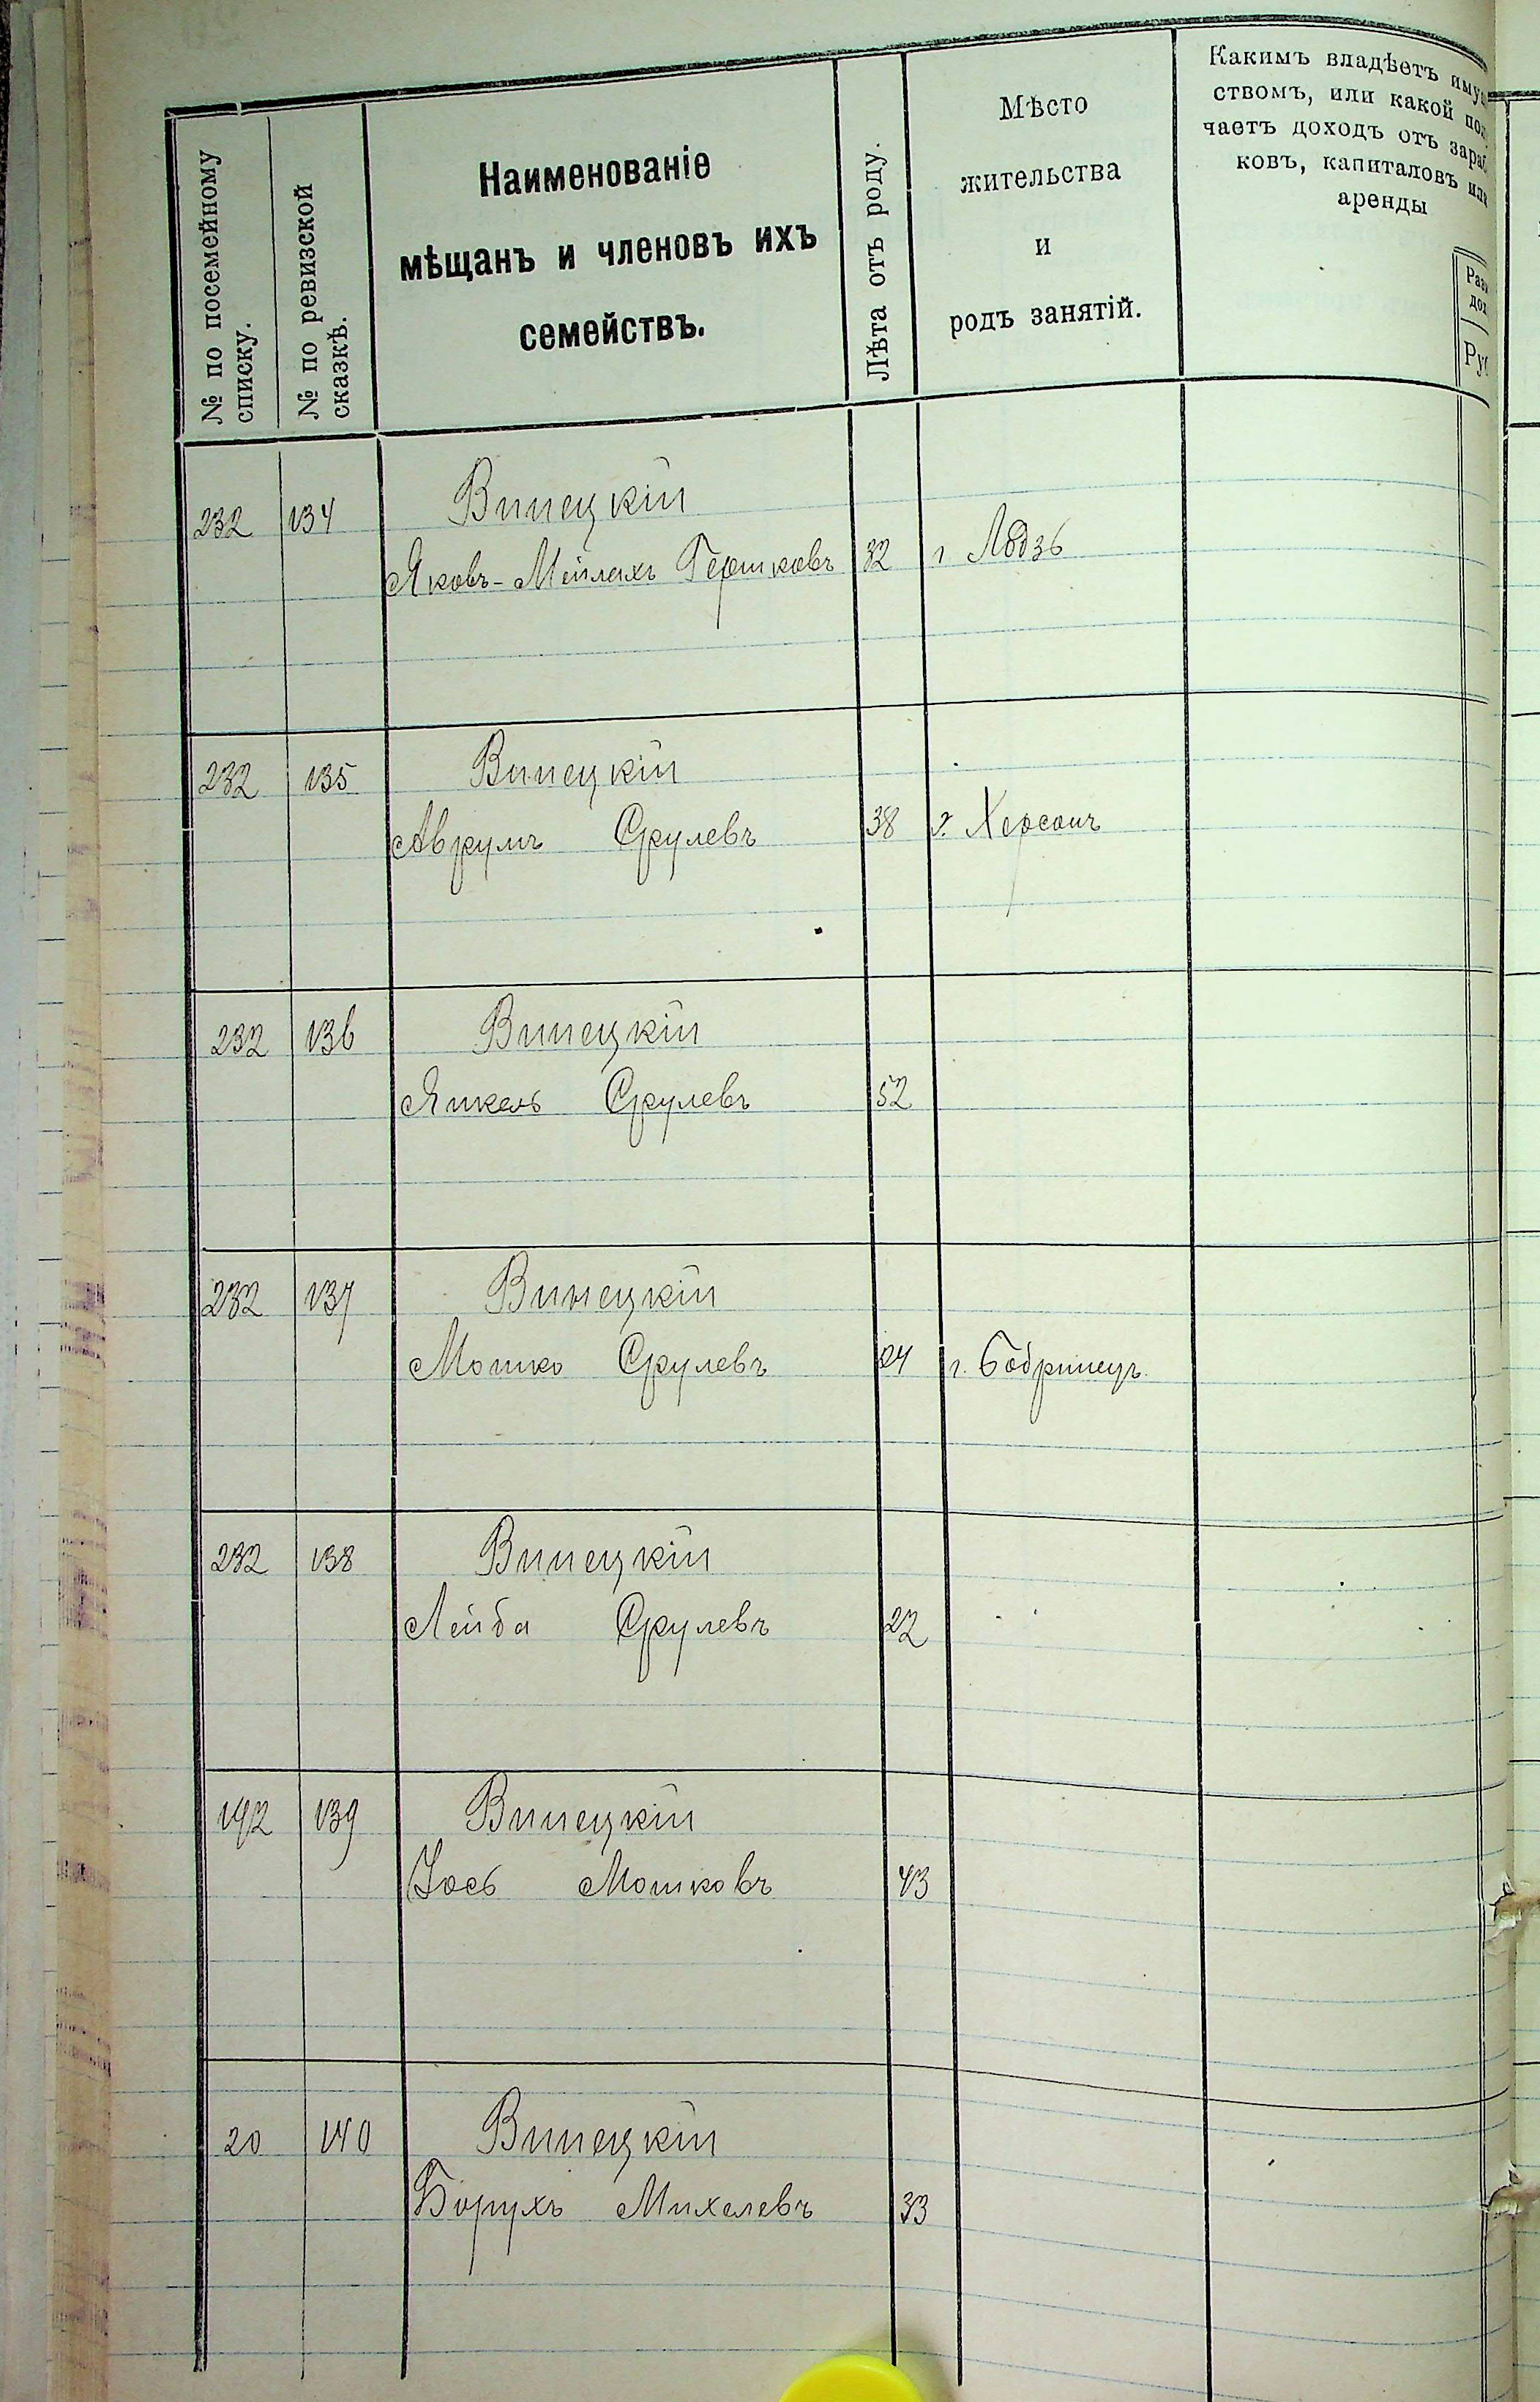 № по посемейному
списку.
№ по ревизской
сказкѣ.
Наименованіе
мѣщанъ и членовъ ихъ
семействъ.
Лѣта отъ роду.
Мѣсто
жительства
и
родъ занятій.
Какимъ владѣетъ иму
ствомъ, или какой пол
чаетъ доходъ отъ зараб
ковъ, капиталовъ или
аренды
Раз
дох
Руб
232 134 Винецкій
Яковъ-Мейлахъ Гершковъ 32 г Лодзь
232 135 Винецкій
Аврумъ Срулевъ 38 г. Херсонъ
232 136 Винецкій
Янкель Срулевъ 52
232 137 Винецкій
Мошко Срулевъ 24 г. Бобринецъ
232 138 Винецкій
Лейба Срулевъ 22
192 139 Винецкій
Іось Мошковъ 43
20 140 Винецкій
Борухъ Михелевъ 33